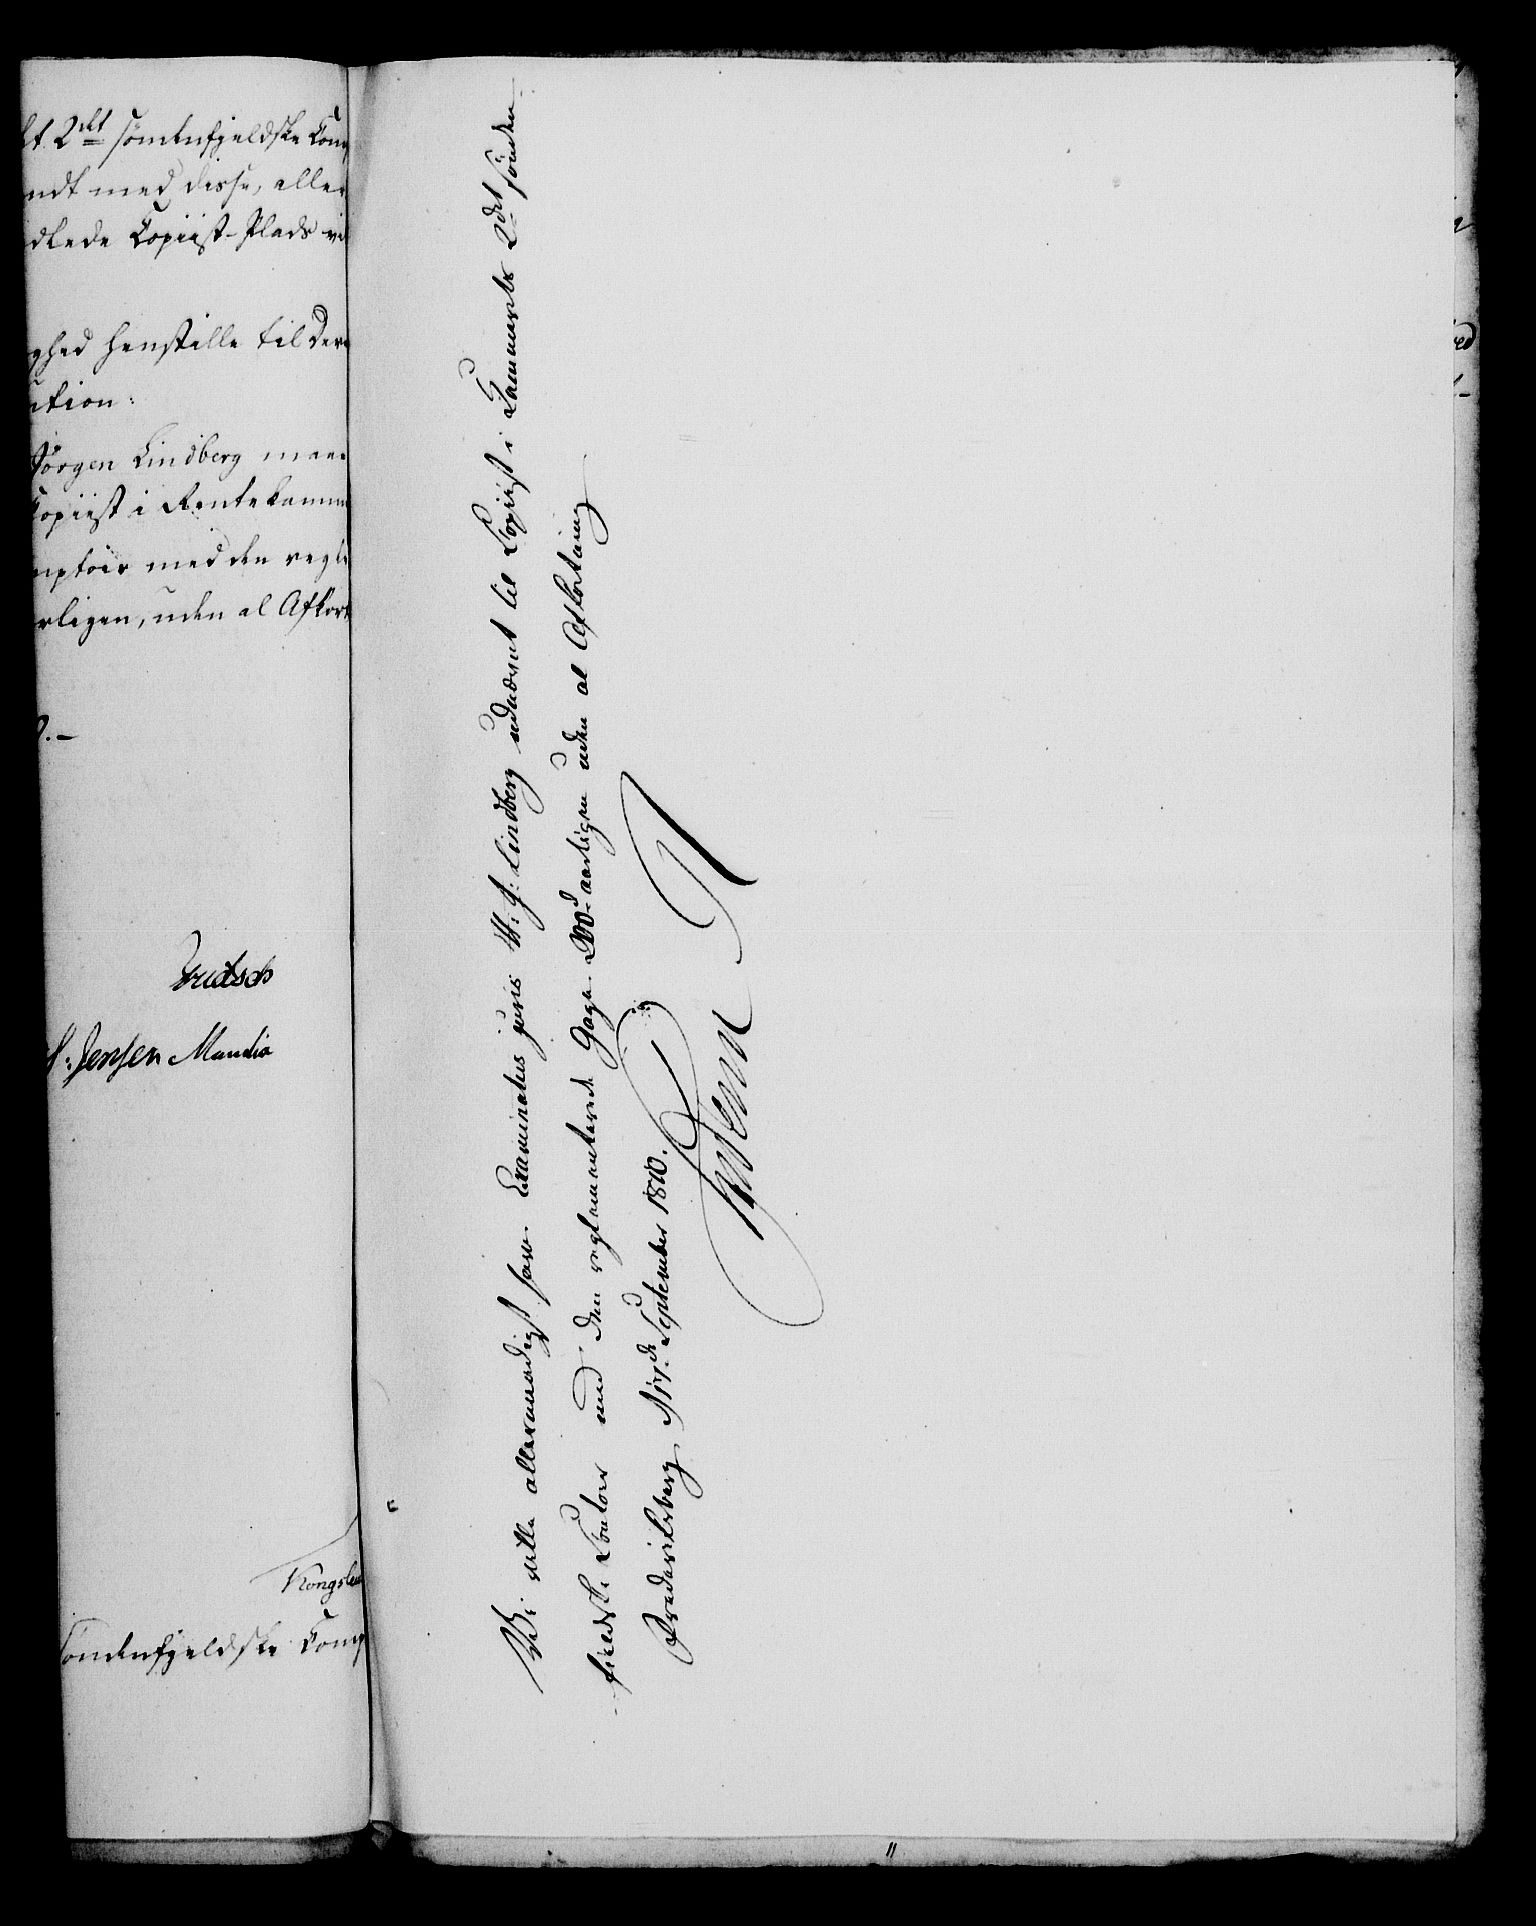 2det söndenfjeldske Com
ndt med disse, aller
dlede Copiist-Plads ve
ghed henstille til Der
ution:
Jörgen Lindberg maae
Copiist i Rentekamm
mptoir med den regle
arligen, uden al Afkort
Fridsch
Jensen Mandix
Kongsle
söndenfjeldske Com
Vi ville allernaadigst have Examinatus juris H: J: Lindberg udnævnt til Copiist i Kammerets 2det sönden-
-fieldske Contoir med den reglementerede Gage aarligen uden al Afkortning
Frederiksberg September 1810.
Frederik R